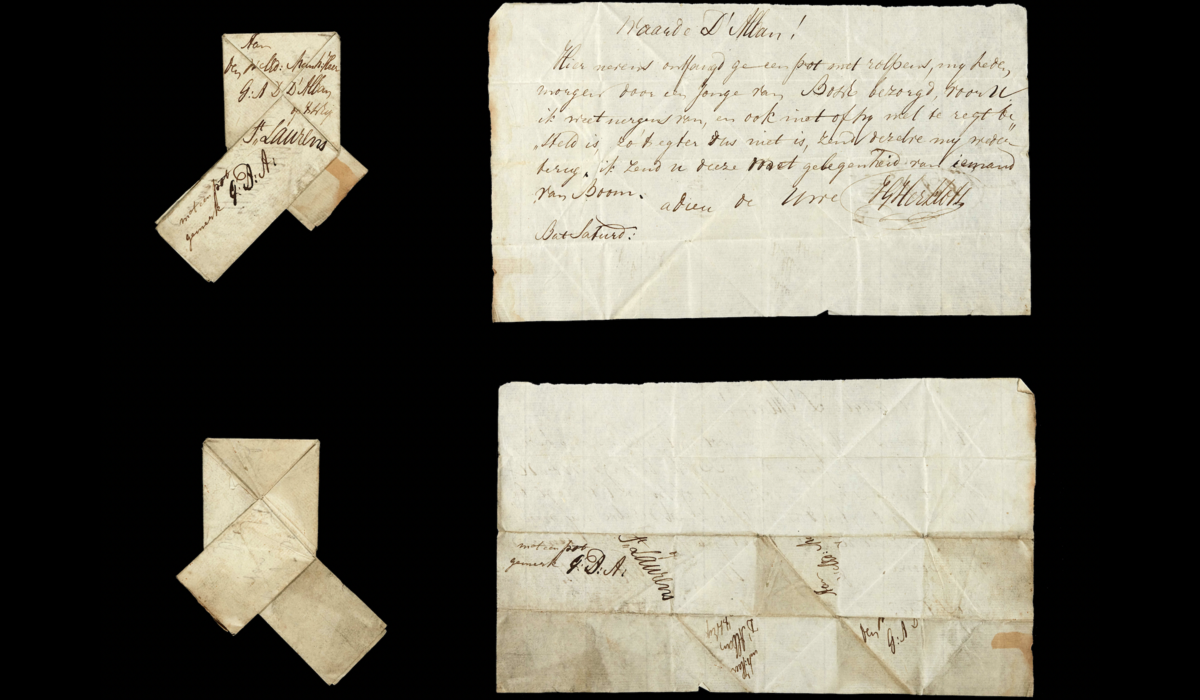 Aan
den
G: A D D'Allans
St. Laurens
met een pot
gemerk G: D: A:
Waarde D'Allan!
Hier nevens ontfangt ge een pot met rolpens, my heden
morgen door en Jonge van Bosse bezorgd, voor U
ik weet nergens van, en ook niet of hy wel te regt be
steld is, zo 't egter dus niet is, zend dezelve my weder
terug. ik zend u deze met gelegenheid van iemand
van Boom. adieu de Uwe
Bat Saturd:
met een pot
gemerk G: D: A:
St. Laurens
D'Allans
den
G: A